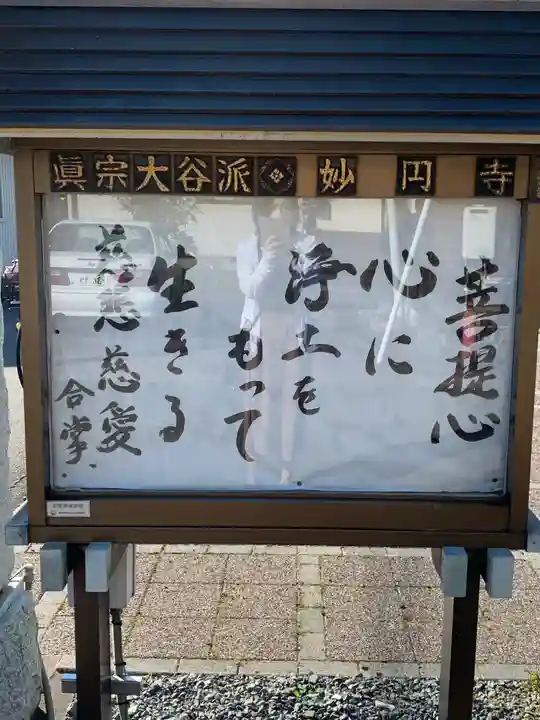 眞宗大谷派 妙円寺
菩提心
心に
浄土を
もって
生きる
慈悲 慈愛
合掌、